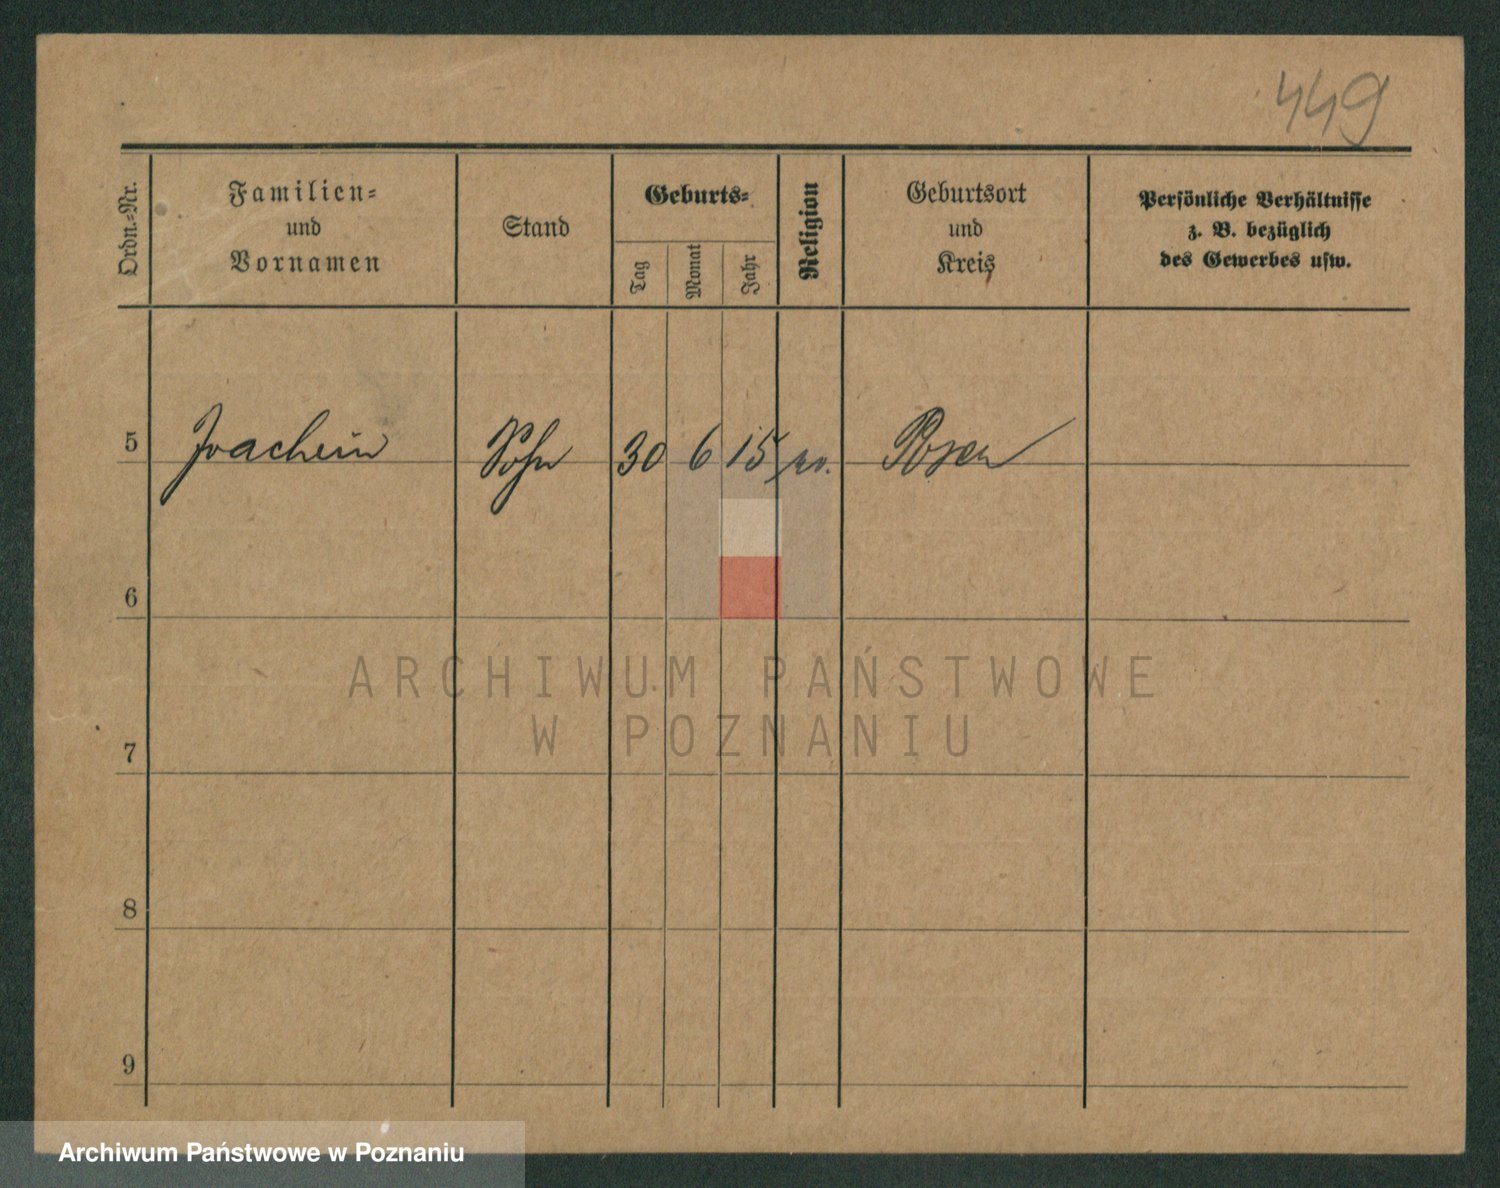 449
Ordn.-Nr.
Familien-
und
Vornamen
Stand
Geburts-
Tag
Monat
Jahr
Religion
Geburtsort
und
Kreis
Persönliche Verhältnisse
z. B. bezüglich
des Gewerbes usw.
5 Joachim Sohn 30 6 15 Posen
6
7
8
9
ARCHIWUM PAŃSTWOWE
W POZNANIU
Archiwum Państwowe w Poznaniu